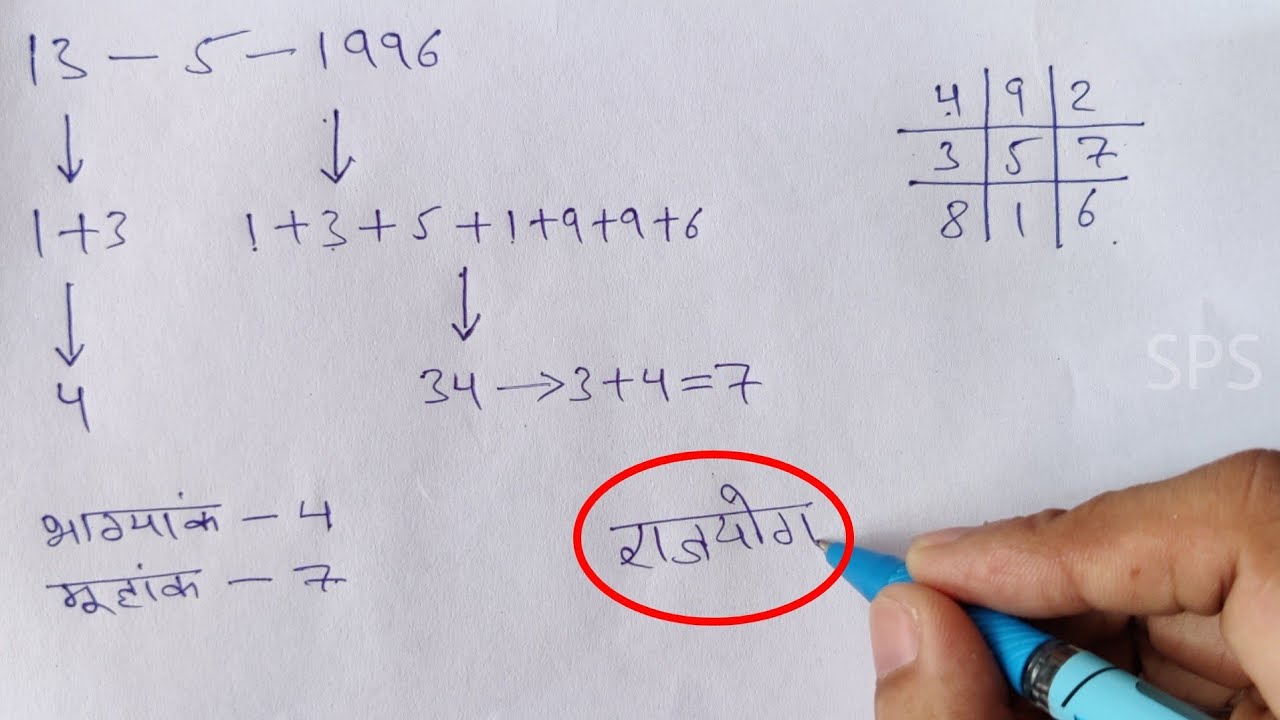 13 - 5 - 1996
↓ ↓
1+3 1+3+5+1+9+9+6
↓ ↓
4 34 → 3+4=7
4 9 2
3 5 7
8 1 6
SPS
भाग्यांक - 4
मूलांक - 7
राजयोग